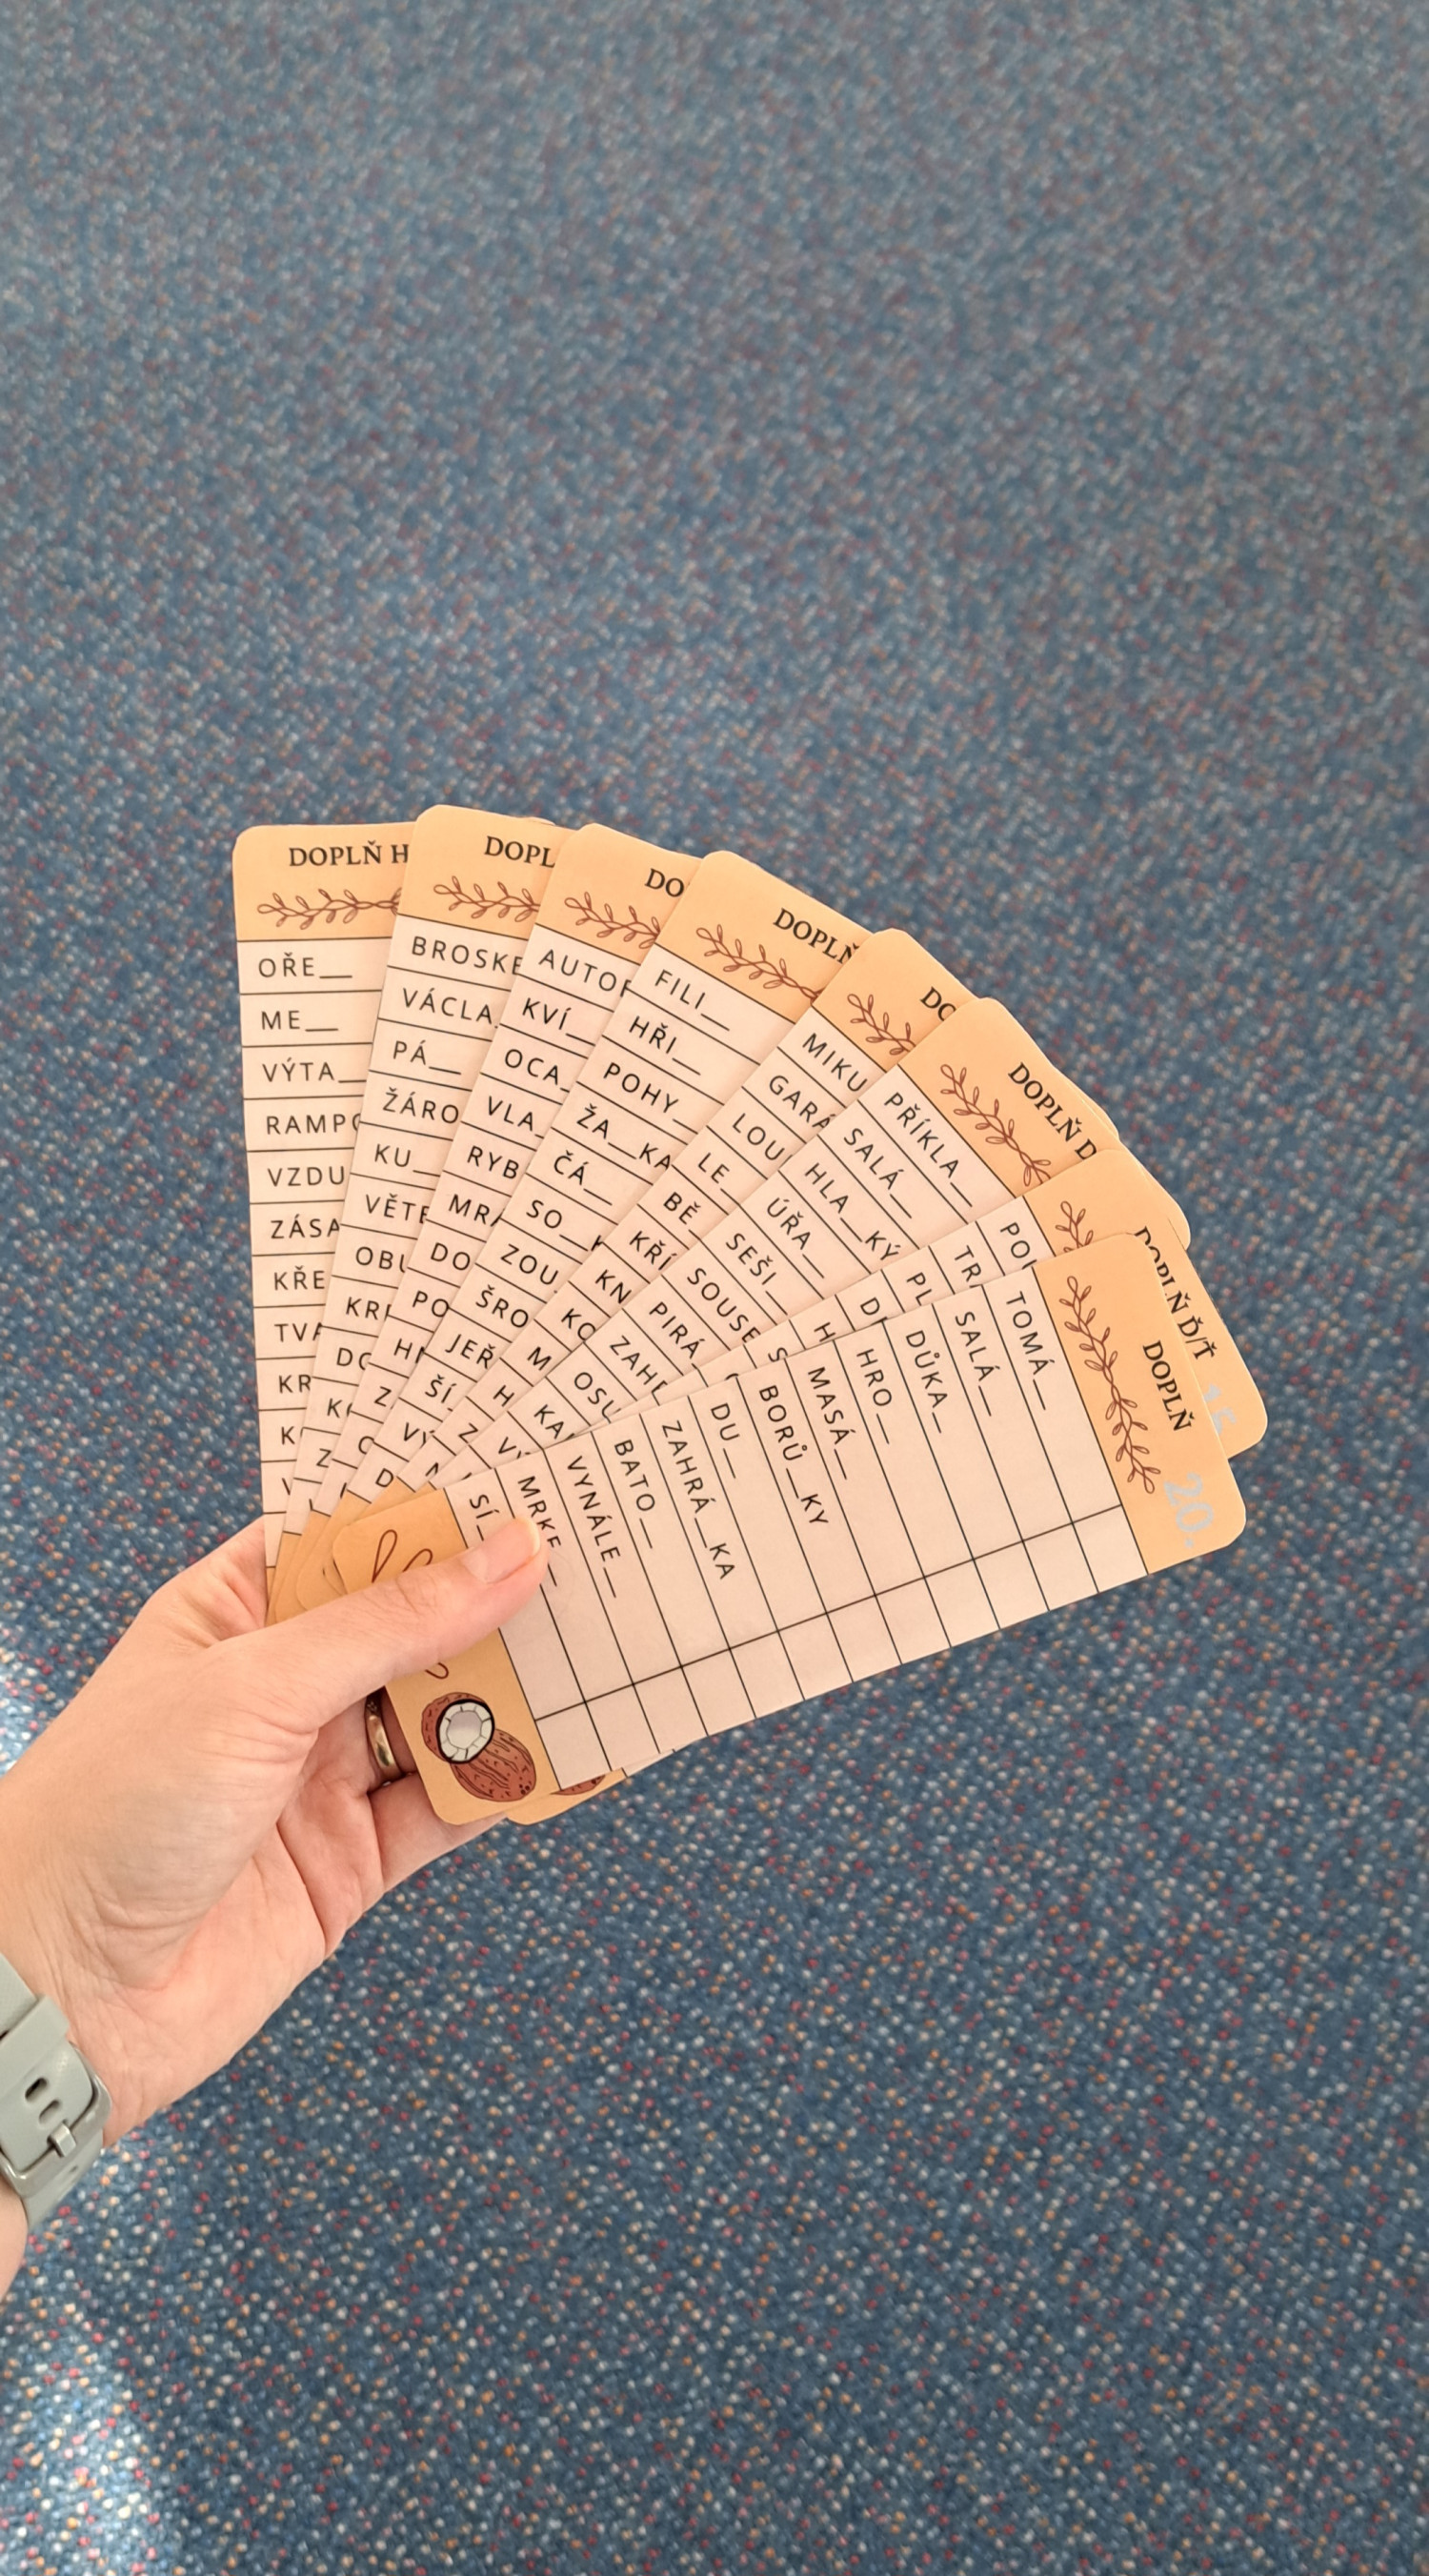 DOPLŇ H
OŘE__
ME__
VÝTA__
RAMPO
VZDU
ZÁSA
KŘE
TVA
KR
K
DOPL
BROSKE
VÁCLA
PÁ__
ŽÁRO
KU__
VĚTE
OBL
KR
DO
K
Z
DO
AUTO
KVÍ__
OCA
VLA
RYB
MRA
DO
PO
H
Z
DOPLŇ
FILI__
HŘI__
POHY__
ŽA__KA
ČÁ__
SO__
ZOU
ŠRO
JEŘ
ŠÍ
DO
MIKU
GARÁ
LOU
LE__
BĚ
KŘÍ
KN
KO
M
H
Z
DOPLŇ D
PŘÍKLA__
SALÁ__
HLA__KÝ
ÚŘA__
SEŠI__
SOUSE
PIRÁ
ZAHR
OSU
KA
DOPLŇ Ď/Ť
TR
PL
D
H
S
DOPLŇ
20.
TOMÁ__
SALÁ__
DŮKA__
HRO__
MASÁ__
BORŮ__KY
DU__
ZAHRÁ__KA
BATO__
VYNÁLE__
MRKE__
SÍ__